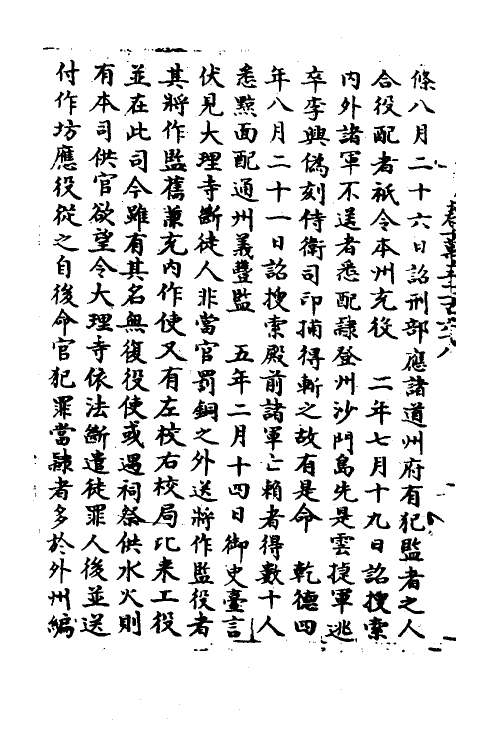 條八月二十六日詔刑部應諸道州府有犯監者之人
合役配者祇令本州充役　二年七月十九日詔搜索
內外諸軍不逞者悉配隸登州沙門島先是雲捷軍逃
卒李興偽刻侍衛司印捕得斬之故有是命　乾德四
年八月二十一日詔搜索殿前諸軍亡賴者得數十人
悉黥面配通州義豐監　五年二月十四日御史臺言
伏見大理寺斷徒人非當官罰銅之外送將作監役者
其將作監舊兼充內作使又有左校右校局比来工役
並在此司今雖有其名無復役使或遇祠祭供水火則
有本司供官欲望令大理寺依法斷遣徒罪人後並送
付作坊應役從之自後命官犯罪當隸者多於外州編